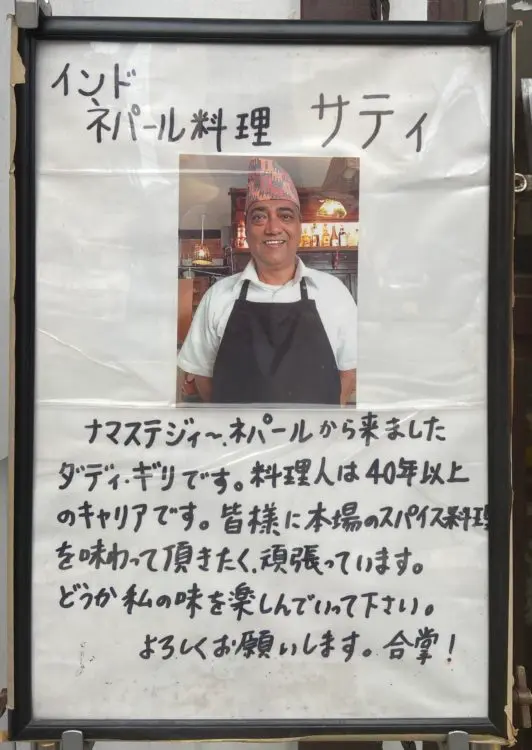 インド
ネパール料理 サティ
ナマステジィ〜、ネパールから来ました
ダディ・ギリです。料理人は40年以上
のキャリアです。皆様に本場のスパイス料理
を味わって頂きたく、頑張っています。
どうか私の味を楽しんでいって下さい。
よろしくお願いします。合掌！